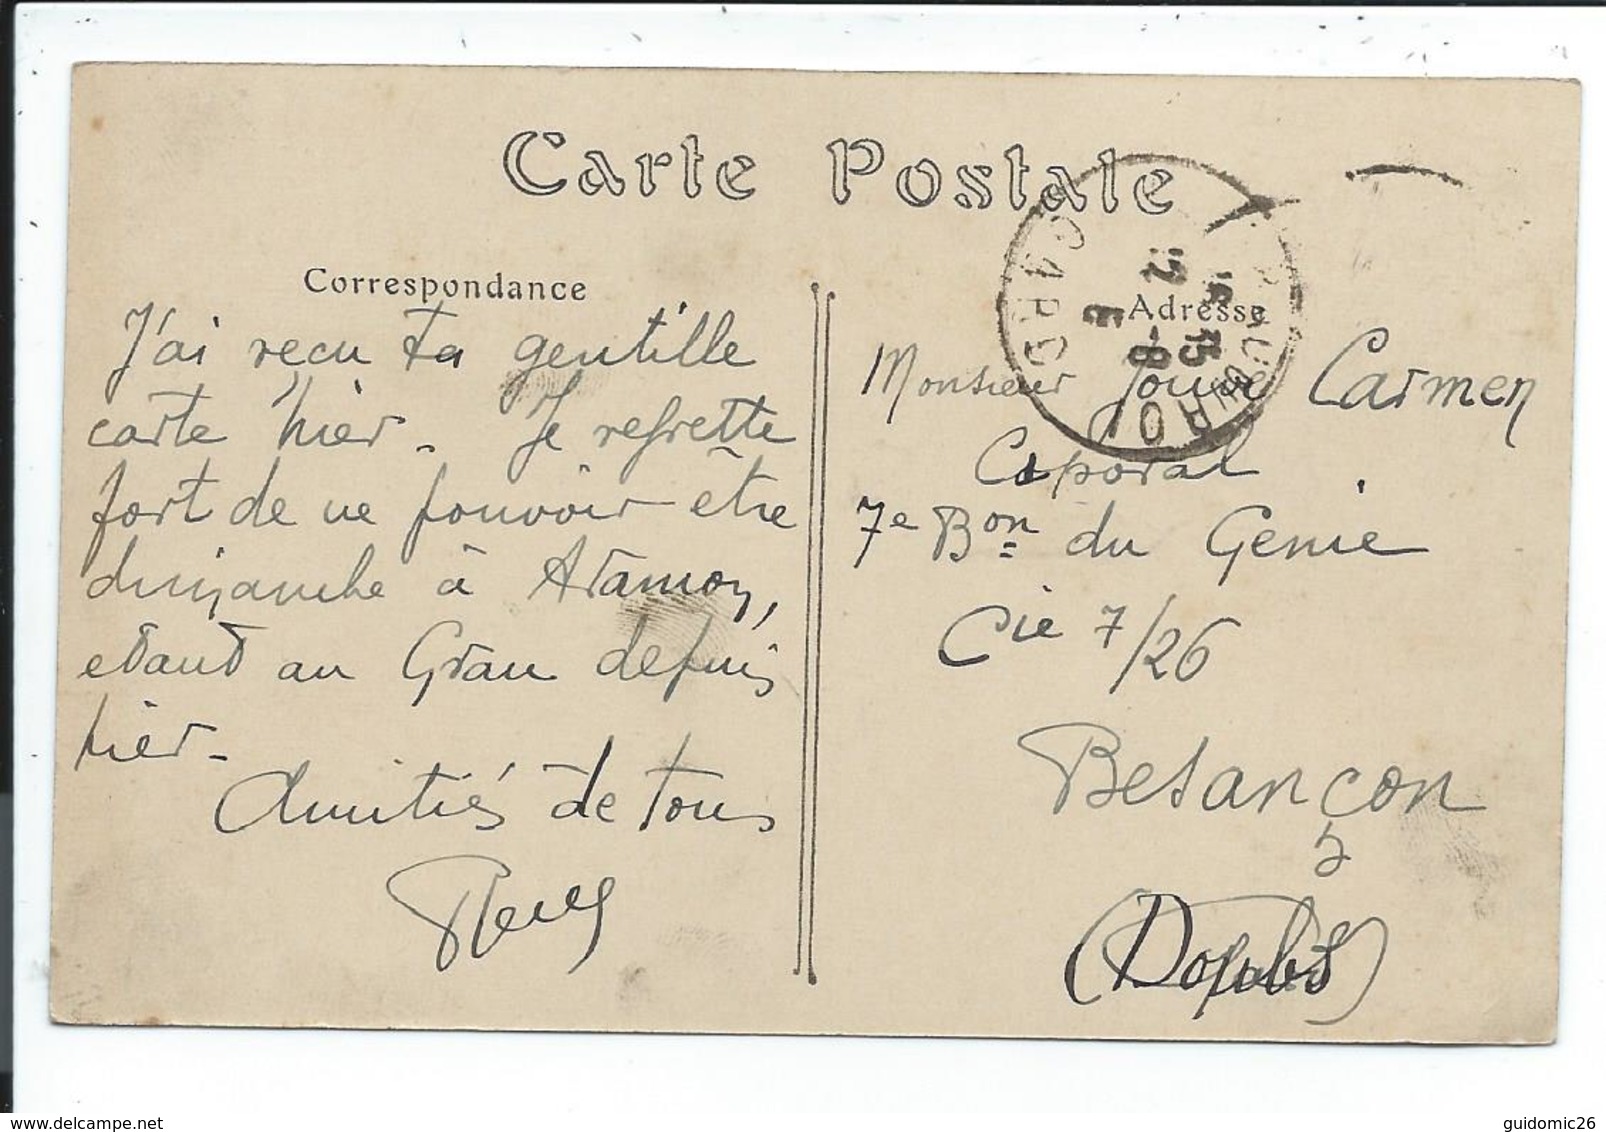 Carte Postale
Correspondance
J'ai recu ta gentille
carte hier. Je regrette
fort de ne pouvoir être
dimanche à Aramon,
etant au Grau depuis
hier.
Amitiés de tous
Adresse
GARD
DU ROI
Monsieur Jouve Carmen
Caporal
7e Bon du Genie
Cie 7/26
Besançon
(Doubs)
guidomic26